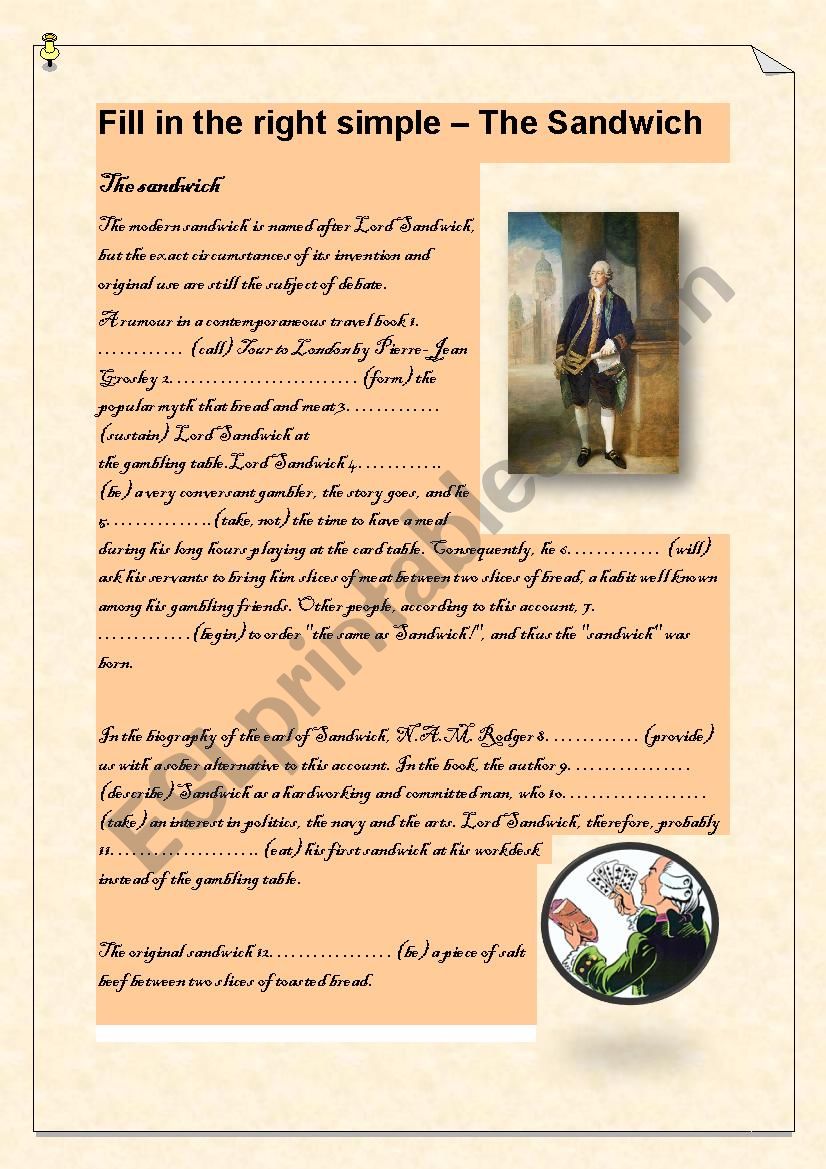 Fill in the right simple – The Sandwich
The sandwich
The modern sandwich is named after Lord Sandwich,
but the exact circumstances of its invention and
original use are still the subject of debate.
A rumour in a contemporaneous travel book 1.
………… (call) Tour to London by Pierre-Jean
Grosley 2……………………. (form) the
popular myth that bread and meat 3…………
(sustain) Lord Sandwich at
the gambling table.Lord Sandwich 4………..
(be) a very conversant gambler, the story goes, and he
5…………..(take, not) the time to have a meal
during his long hours playing at the card table. Consequently, he 6…………. (will)
ask his servants to bring him slices of meat between two slices of bread, a habit well known
among his gambling friends. Other people, according to this account, 7.
………….(begin) to order "the same as Sandwich!", and thus the "sandwich" was
born.
In the biography of the earl of Sandwich, N.A.M. Rodger 8…………. (provide)
us with a sober alternative to this account. In the book, the author 9……………..
(describe) Sandwich as a hardworking and committed man, who 10………………..
(take) an interest in politics, the navy and the arts. Lord Sandwich, therefore, probably
11………………... (eat) his first sandwich at his workdesk
instead of the gambling table.
The original sandwich 12……………. (be) a piece of salt
beef between two slices of toasted bread.
ESLprintables.com